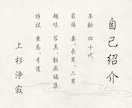 自己紹介
年齢 四十代
家族 妻、長男、二男
趣味 写真、動画編集
特技 乗馬、弓道
上杉淨寂